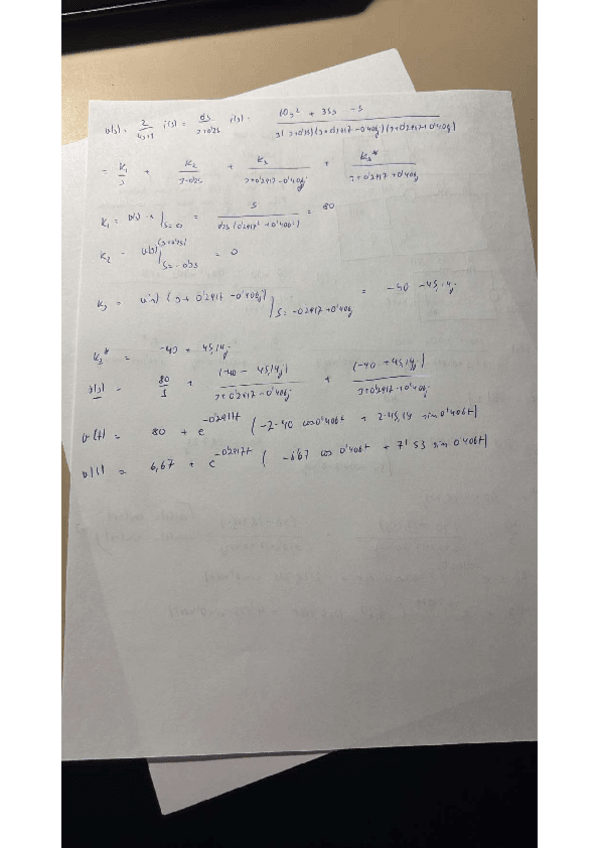 v(s) = 2/(4s+1) i(s) = 0'5/(s+0'25) i(s) = (10s² + 35s - 5)/(s(s+0'25)(s+0'2917-0'406j)(s+0'2917+0'406j))
= K₁/s + K₂/(s+0'25) + K₃/(s+0'2917-0'406j) + K₃*/(s+0'2917+0'406j)
K₁ = v(s)·s |s=0 = 5/(0'25(0'2917²+0'406²)) = 80
K₂ = v(s)(s+0'25) |s=-0'25 = 0
K₃ = v(s)(s+0'2917-0'406j) |s=-0'2917+0'406j = -40 -45,14j
K₃* = -40 + 45,14j
v(s) = 80/s + (-40 - 45,14j)/(s+0'2917-0'406j) + (-40 + 45,14j)/(s+0'2917+0'406j)
v(t) = 80 + e^-0'2917t (-2·40 cos 0'406t + 2·45,14 sin 0'406t)
v(t) = 6,67 + e^-0'2917t (-6'67 cos 0'406t + 7'53 sin 0'406t)